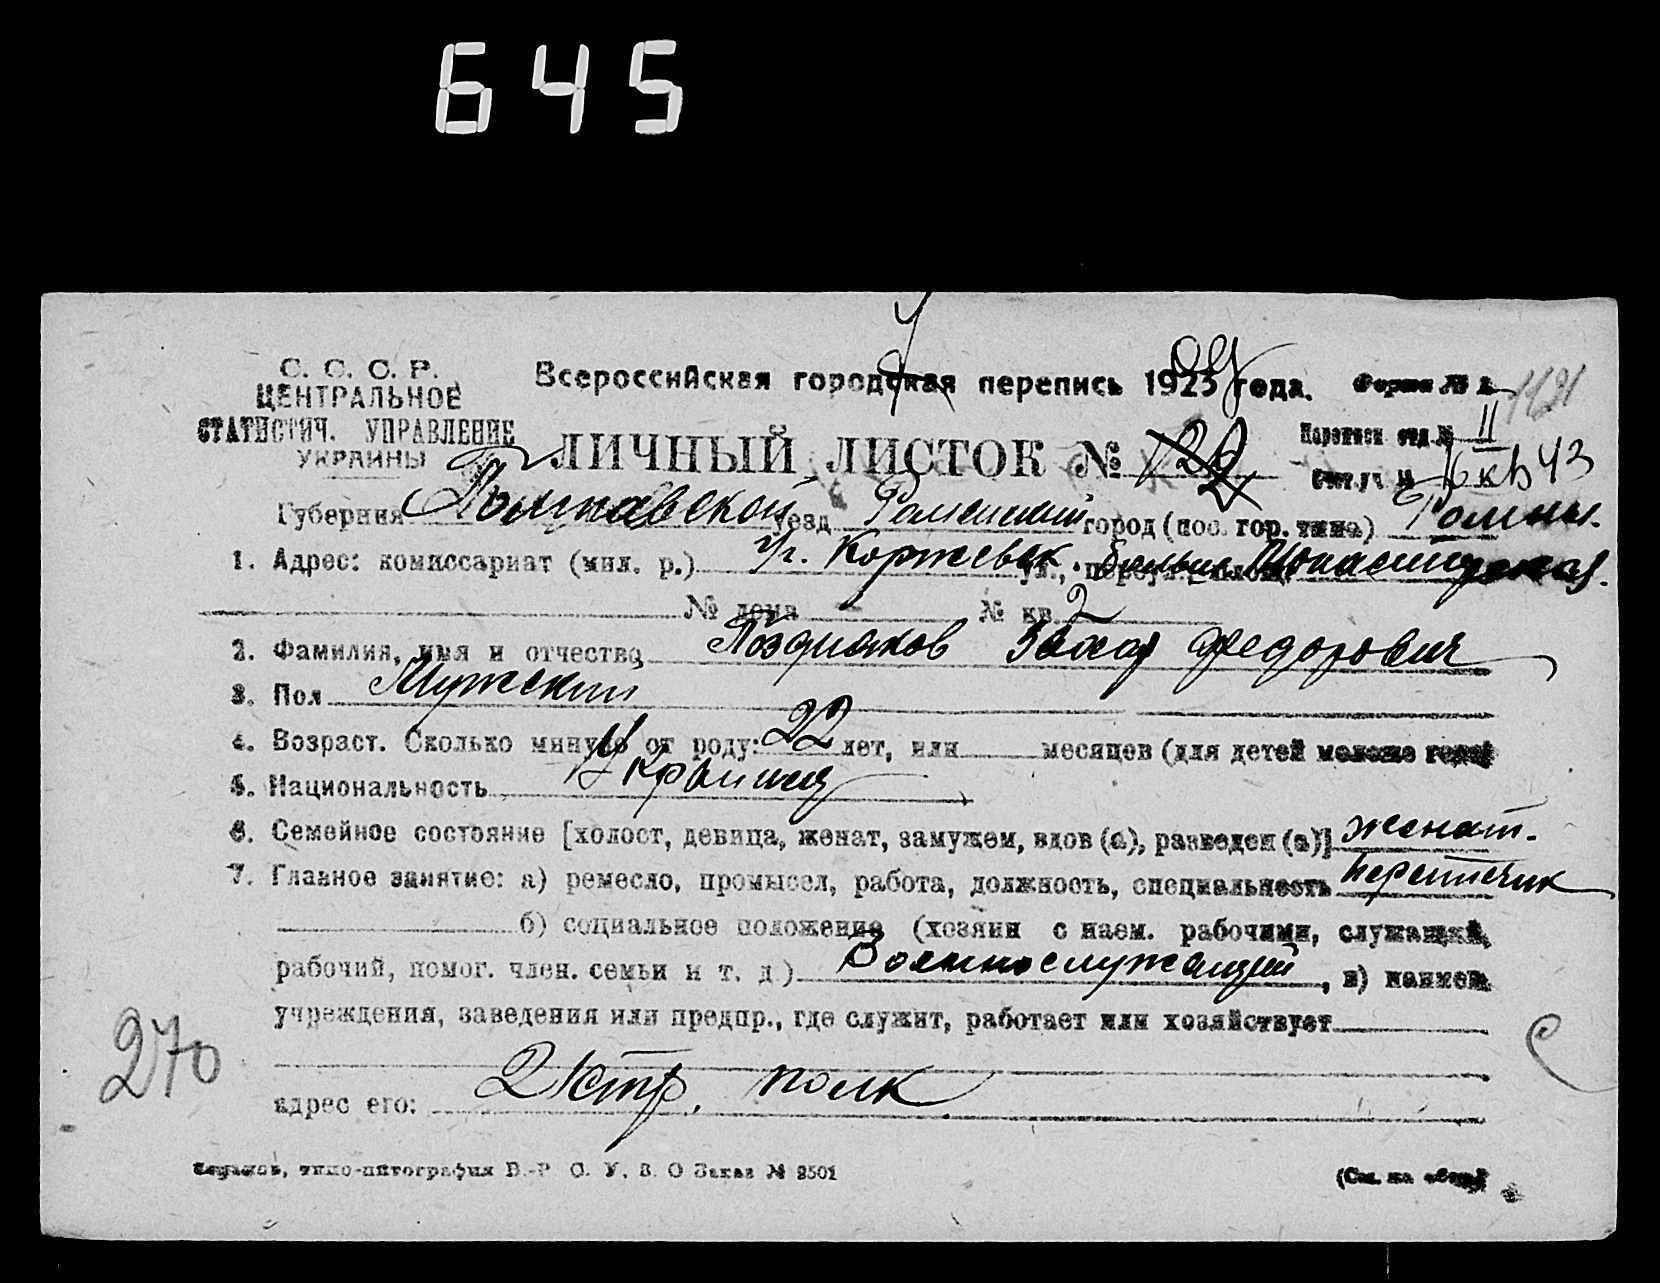 645
С. С. С. Р.
ЦЕНТРАЛЬНОЕ
СТАТИСТИЧ. УПРАВЛЕНИЕ
УКРАИНЫ
Всероссийская городская перепись 1923 года.
Форма № 2
1121
ЛИЧНЫЙ ЛИСТОК №
Переписн отд. № II
Счет. уч. № 43
Губерния Полтавской уезд Роменский город (пос. гор. типа) Ромны.
1. Адрес: комиссариат (мил. р.) уг. Коржевск. ул., переул., площ.
№ дома № кв. 2
2. Фамилия, имя и отчество Поздняков Захар Федорович
3. Пол Мужской
4. Возраст. Сколько минуло от роду: 22 лет, или месяцев (для детей моложе года)
5. Национальность
6. Семейное состояние [холост, девица, женат, замужем, вдов (а), разведен (а)] женат.
7. Главное занятие: а) ремесло, промысел, работа, должность, специальность
б) социальное положение (хозяин с наем. рабочими, служащий,
рабочий, помог. член. семьи и т. д.) Военнослужащий, в) наимен.
учреждения, заведения или предпр., где служит, работает или хозяйствует
270
адрес его: 2 стр. полк
Харьков, типо-литография В.-Р. С. У. В. О Заказ № 2501
(См. на обор.)